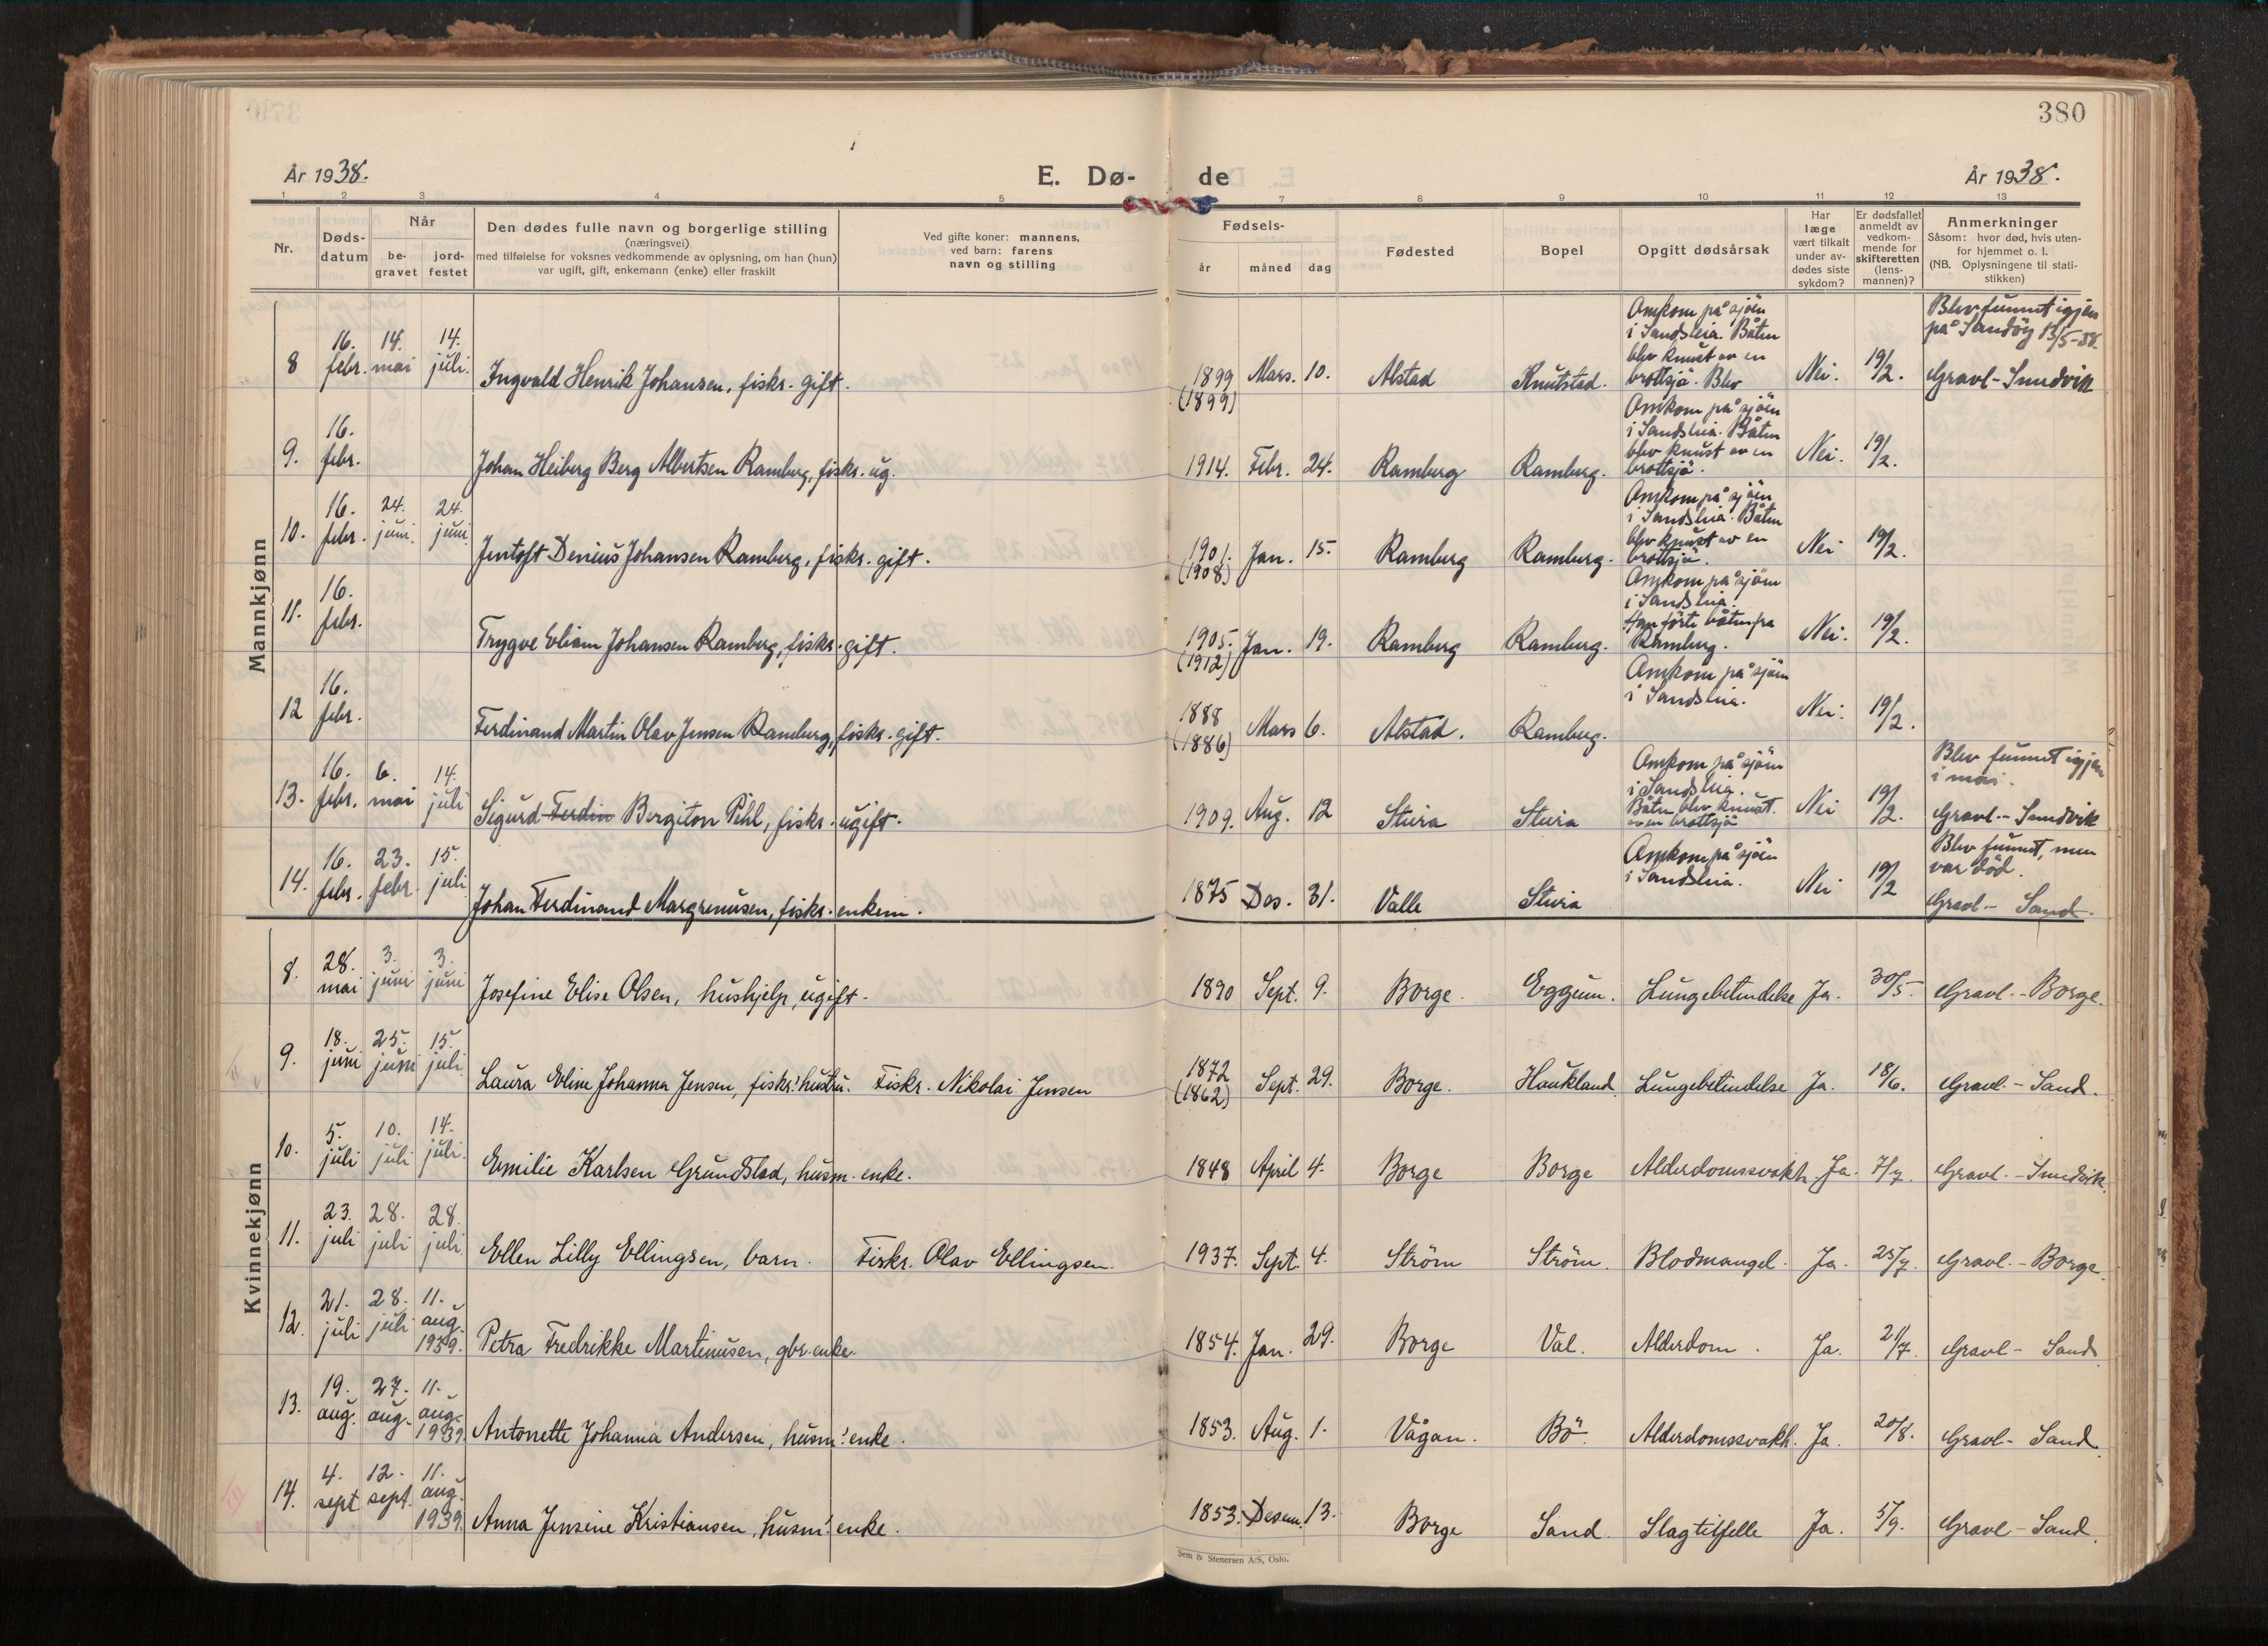 380
År 1938.
E. Dø- de
År 1938.
1 2 3 4 5 7 8 9 10 11 12 13
Nr.
Døds-
datum
Når
be-
gravet
jord-
festet
Den dødes fulle navn og borgerlige stilling
(næringsvei)
med tilføielse for voksnes vedkommende av oplysning, om han (hun)
var ugift, gift, enkemann (enke) eller fraskilt
Ved gifte koner: mannens,
ved barn: farens
navn og stilling
Fødsels-
år måned dag
Fødested
Bopel
Opgitt dødsårsak
Har
læge
vært tilkalt
under av-
dødes siste
sykdom?
Er dødsfallet
anmeldt av
vedkom-
mende for
skifteretten
(lens-
mannen)?
Anmerkninger
Såsom: hvor død, hvis uten-
for hjemmet o. l.
(NB. Oplysningene til stati-
stikken)
Mannkjønn
8
16. febr.
14. mai
14. juli.
Ingvald Henrik Johansen, fisker. gift.
1899
(1899)
Mars. 10.
Alstad
Knutstad.
Omkom på sjöen
i Sandsleia. Båten
blev knust av en
brottsjö. Blev
Nei.
19/2.
Blev funnet igjen
på Sandöy 13/5-38.
Gravl-Sundvik
9.
16. febr.
Johan Heiberg Berg Albertsen Ramberg, fisker. ug.
1914. Febr. 24.
Ramberg
Ramberg.
Omkom på sjöen
i Sandsleia. Båten
blev knust av en
brottsjö.
Nei.
19/2.
10.
16. febr.
24. juni.
24. juni
Jentoft Denius Johansen Ramberg, fisker. gift.
1901.
(1908)
Jan. 15.
Ramberg
Ramberg.
Omkom på sjöen
i Sandsleia. Båten
blev knust av en
brottsjö.
Nei
19/2.
11.
16. febr.
Trygve Eliam Johansen Ramberg, fisker. gift.
1905.
(1912)
Jan. 19.
Ramberg
Ramberg.
Omkom på sjöen
i Sandsleia.
Han förte båten fra
Ramberg.
Nei.
19/2.
12
16. febr.
Ferdinand Martin Olav Jensen Ramberg, fisker. gift.
1888
(1886)
Mars 6.
Alstad.
Ramberg.
Omkom på sjöen
i Sandsleia.
Nei.
19/2.
13.
16. febr.
6. mai
14. juli
Sigurd Ferdin Bergiton Pihl, fisker. ugift.
1909. Aug. 12
Stura
Stura
Omkom på sjöen
i Sandsleia.
Båten blev knust.
av en brottsjö
Nei
19/2.
Blev funnet igjen
i mai.
Gravl.-Sundvik
14.
16. febr.
23. febr.
15. juli
Johan Ferdinand Margrenusen, fisker. enkem.
1875 Des. 31.
Valle
Stura
Omkom på sjöen
i Sandsleia.
Nei
19/2
Blev funnet, men
var död.
Gravl- Sand.
Kvinnekjønn
8.
28. mai
3. juni
3. juni
Josefine Elise Olsen, hushjelp, ugift.
1890 Sept. 9.
Borge.
Eggum.
Lungebetendelse
Ja.
30/5.
Gravl.-Borge.
9.
18. juni
25. juni
15. juli
Laura Eline Johanna Jensen, fiskr.' hustru. Fiskr. Nikolai Jensen
1872
(1862)
Sept. 29.
Borge.
Haukland.
Lungebetendelse
Ja.
18/6.
Gravl.-Sand.
10.
5. juli
10. juli
14. juli.
Emilie Karlsen Grundstad, husm. enke.
1848 April 4.
Borge
Borge
Alderdomssvakh.
Ja.
7/7.
Gravl.-Sundvik.
11.
23. juli
28. juli
28. juli.
Ellen Lilly Ellingsen, barn. Fiskr. Olav Ellingsen.
1937. Sept. 4.
Ström
Ström.
Blodmangel.
Ja.
25/7.
Gravl.-Borge.
12.
21. juli
28. juli
11. aug. 1939.
Petra Fredrikke Martinusen, gbr. enke.
1854. Jan. 29.
Borge
Val.
Alderdom.
Ja.
21/7.
Gravl- Sand
13.
19. aug.
27. aug.
11. aug. 1939.
Antonette Johanna Andersen, husm.' enke.
1853. Aug. 1.
Vågan.
Bö.
Alderdomssvakh.
Ja.
20/8.
Gravl- Sand.
14.
4. sept.
12. sept.
11. aug. 1939.
Anna Jensine Kristiansen, husm.' enke.
1853. Desem. 13.
Borge
Sand.
Slagtilfelle
Ja.
5/9.
Gravl-Sand.
Sem & Stenersen A/S, Oslo.